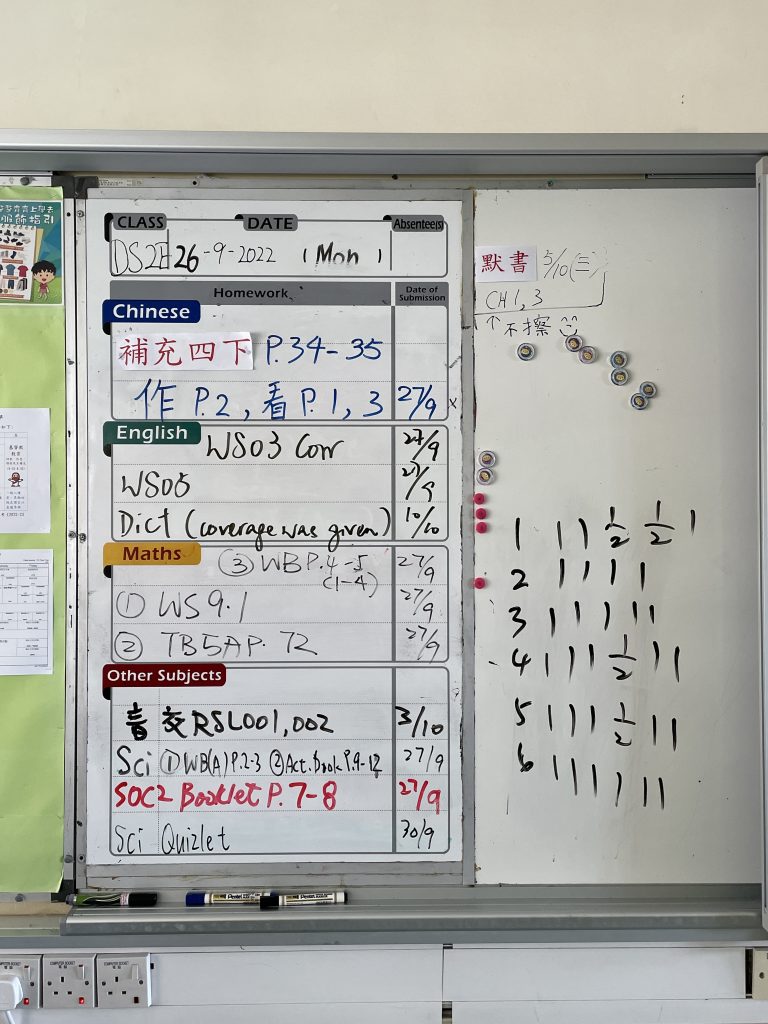 學齊齊上學去
服飾指引
CLASS DATE Absentee(s)
26-9-2022 (Mon)
Homework Date of Submission
Chinese
補充四下 P.34-35
作 P.2, 看 P.1, 3 27/9
English WS03 Corr 27/9
WS05 27/9
Dict (coverage was given) 10/10
Maths ③ WB P.4-5 (1-4) 27/9
① WS 9.1 27/9
② TB5A P.72 27/9
Other Subjects
音 交 RSL001,002 3/10
Sci ① WB(A) P.2-3 ② Act. Book P.9-12 27/9
SOC2 Booklet P.7-8 27/9
Sci Quizlet 30/9
默書 5/10 (三)
CH 1, 3
↑不擦
1 1 1 1/2 1/2 1
2 1 1 1 1
3 1 1 1 1 1
4 1 1 1 1/2 1 1
5 1 1 1 1/2 1 1
6 1 1 1 1 1 1
Pentel
Pentel